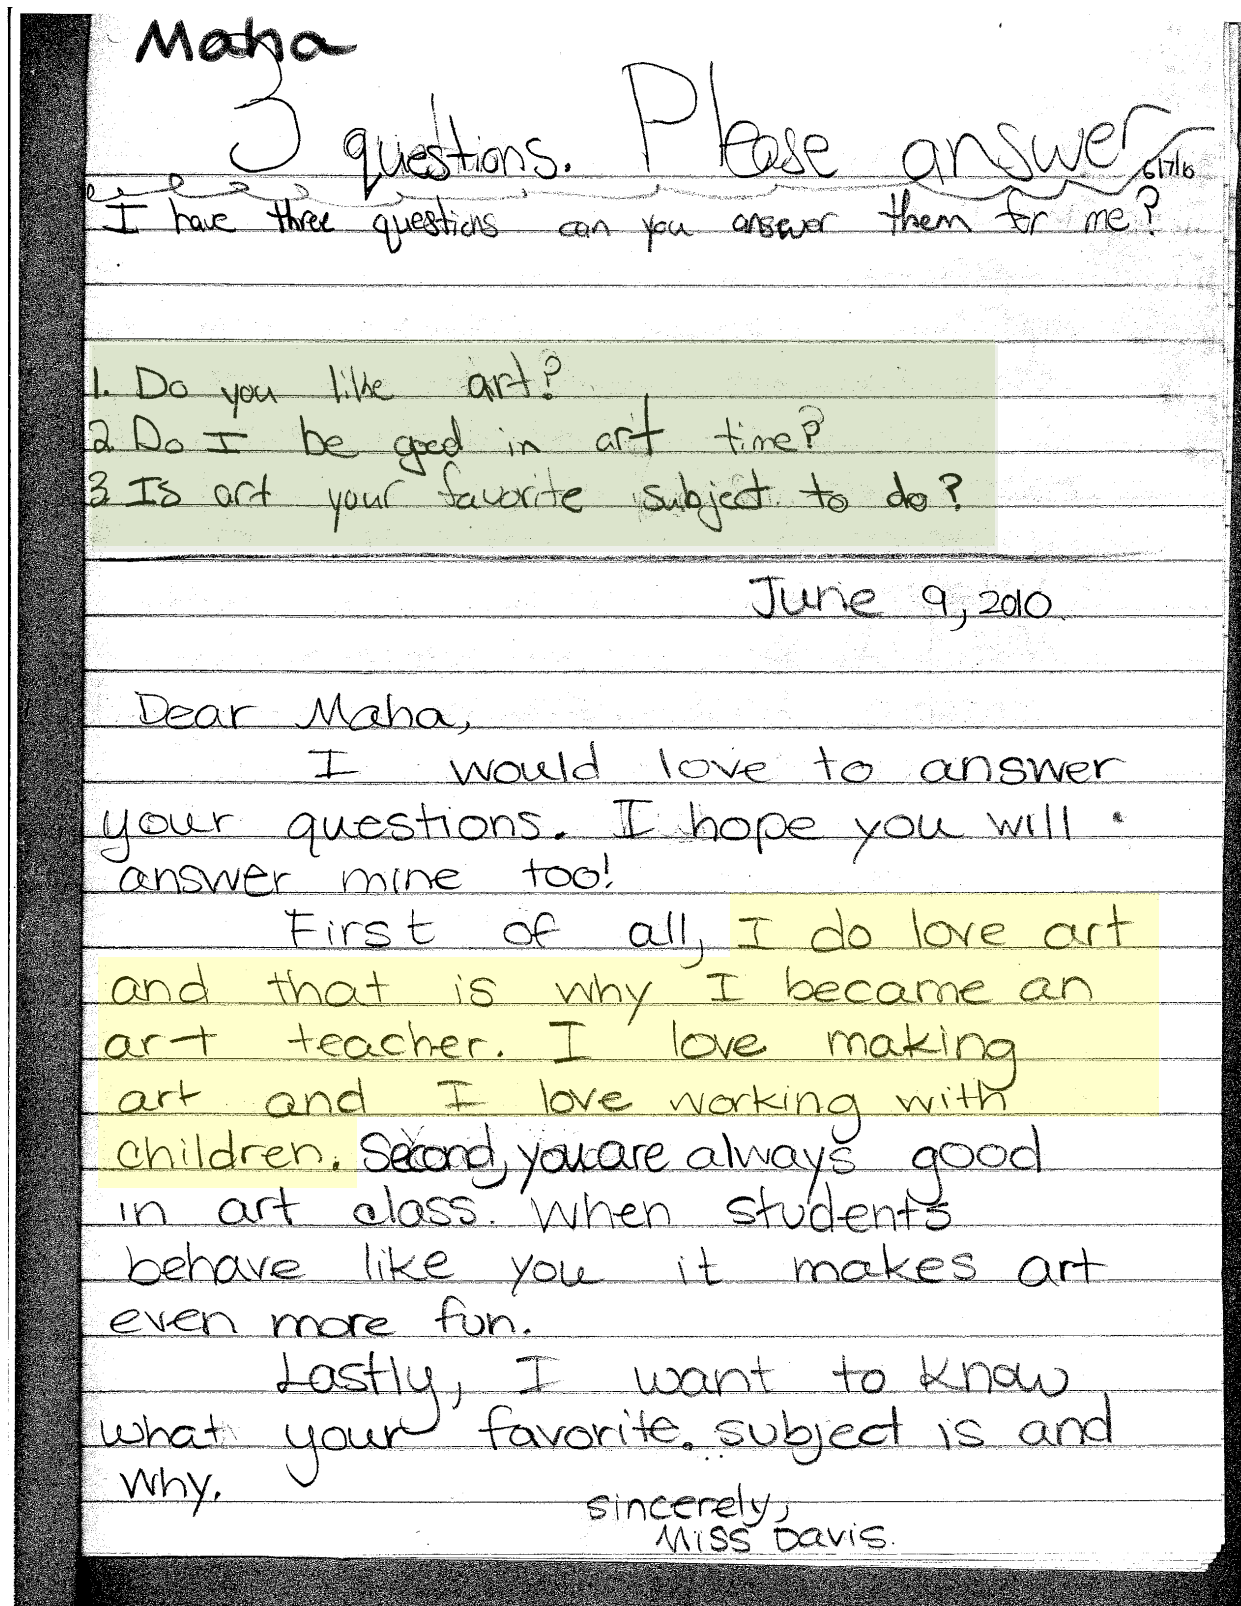 Maha
3 questions. Please answer
I have three questions can you answer them for me?
1. Do you like art?
2. Do I be good in art time?
3. Is art your favorite subject to do?
June 9, 2010
Dear Maha,
I would love to answer
your questions. I hope you will
answer mine too!
First of all, I do love art
and that is why I became an
art teacher. I love making
art and I love working with
children. Second, you are always good
in art class. When students
behave like you it makes art
even more fun.
Lastly, I want to know
what your favorite. subject is and
why.
sincerely,
Miss Davis.